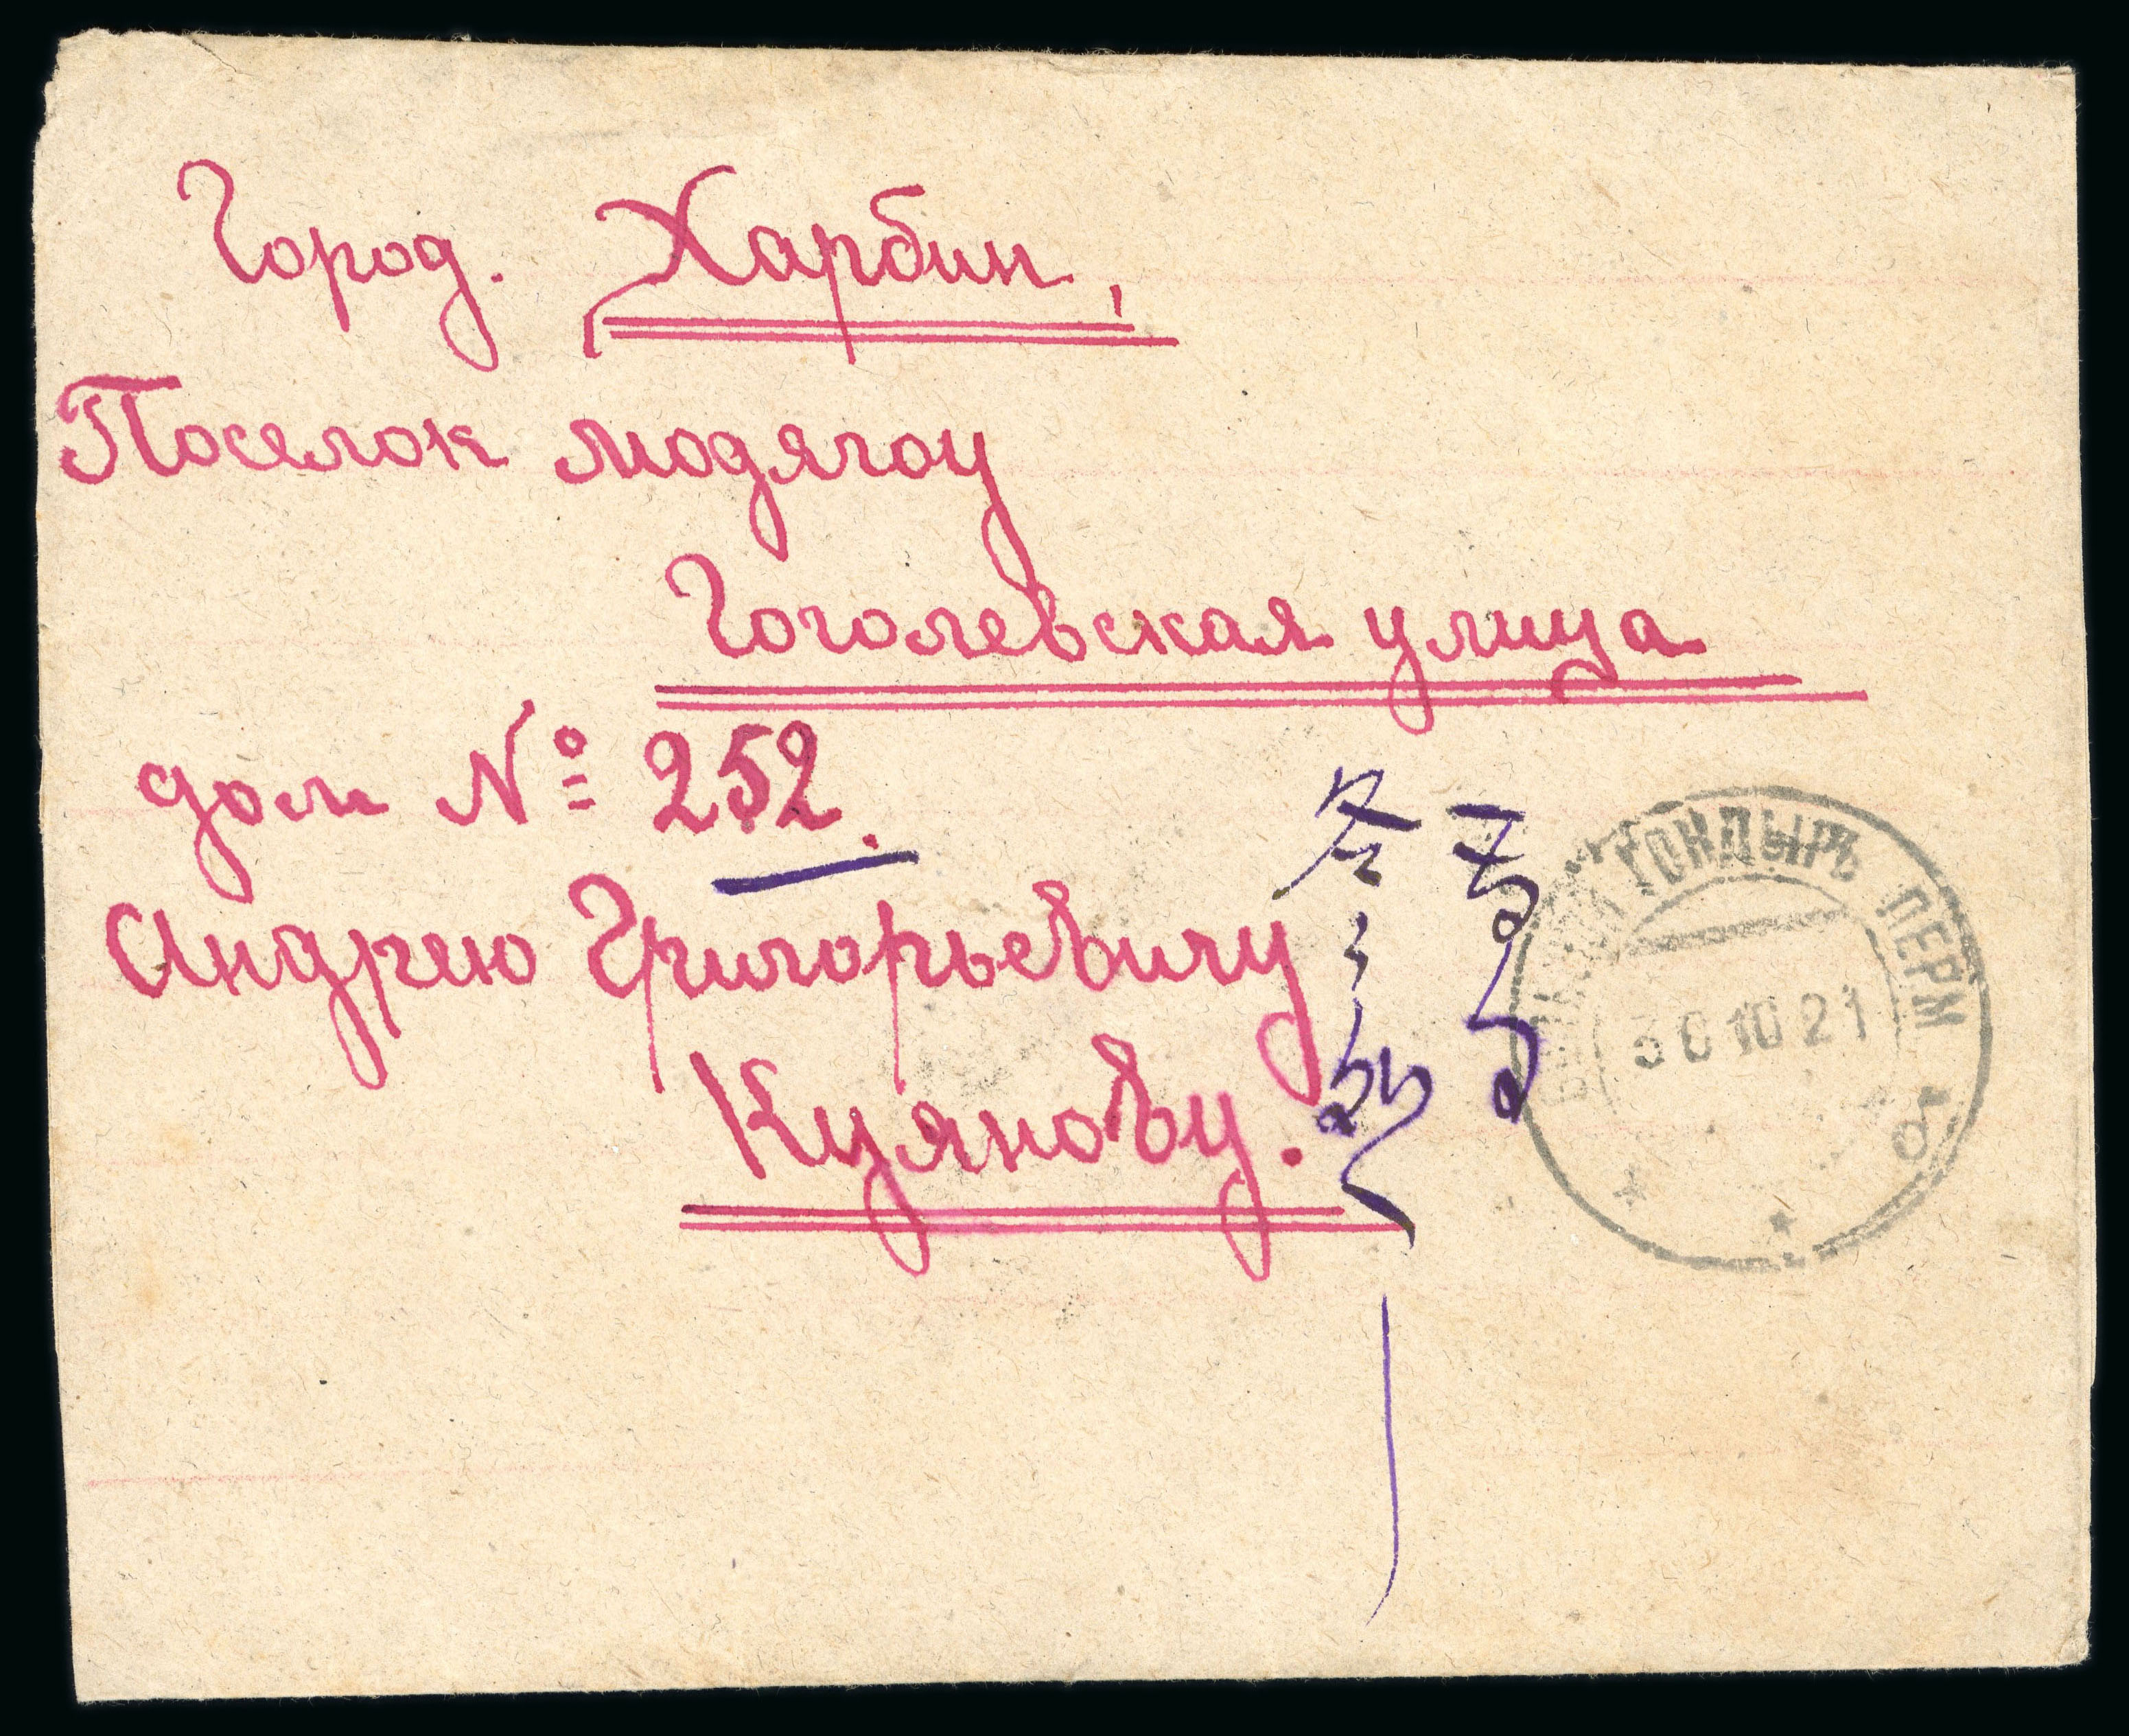 Город. Харбин,
Поселок модягоу
Гоголевская улица
дом № 252.
Андрею Григорьевичу
Куянову.
ГОНДЫРЪ ПЕРМ
30 10 21
б